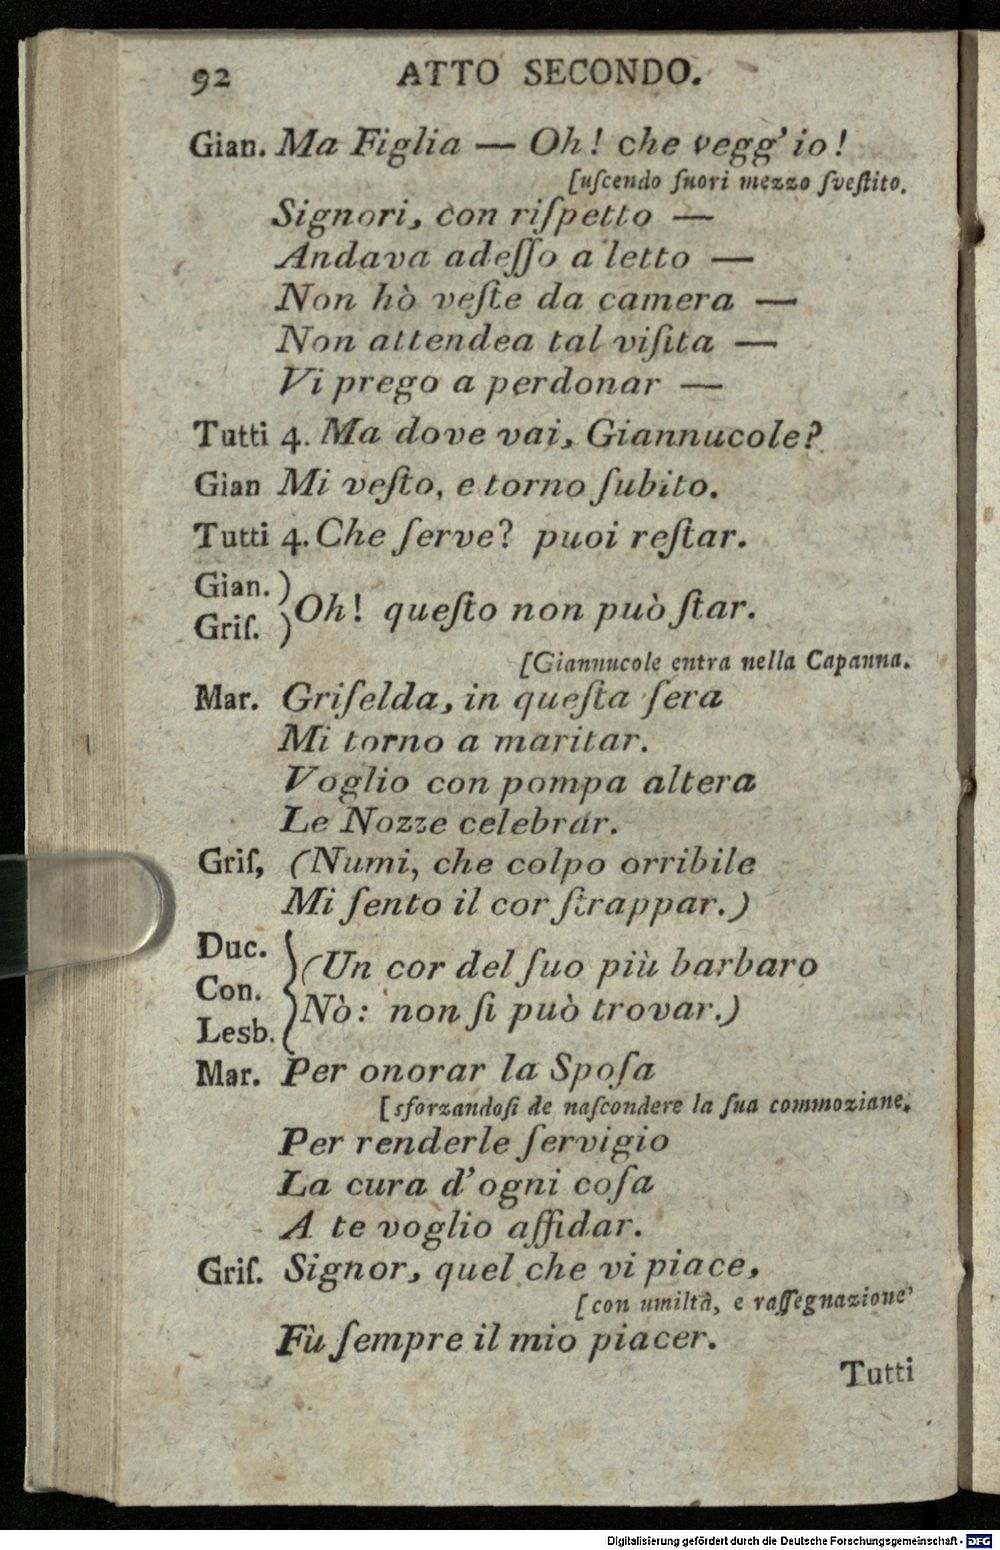 92 ATTO SECONDO.
Gian. Ma Figlia — Oh! che vegg'io!
[uſcendo fuori mezzo ſveſtito.
Signori, con riſpetto —
Andava adeſſo a letto —
Non hò veſte da camera —
Non attendea tal viſita —
Vi prego a perdonar —
Tutti 4. Ma dove vai, Giannucole?
Gian Mi veſto, e torno ſubito.
Tutti 4. Che ſerve? puoi reſtar.
Gian. )
Griſ. ) Oh! queſto non può ſtar.
[Giannucole entra nella Capanna.
Mar. Griſelda, in queſta ſera
Mi torno a maritar.
Voglio con pompa altera
Le Nozze celebrar.
Griſ, (Numi, che colpo orribile
Mi ſento il cor ſtrappar.)
Duc.
Con.
Lesb.
(Un cor del ſuo più barbaro
Nò: non ſi può trovar.)
Mar. Per onorar la Spoſa
[sforzandoſi de naſcondere la ſua commoziane.
Per renderle ſervigio
La cura d'ogni coſa
A te voglio affidar.
Griſ. Signor, quel che vi piace,
[con umiltà, e raſſegnazione'
Fù ſempre il mio piacer.
Tutti
Digitalisierung gefördert durch die Deutsche Forschungsgemeinschaft - DFG